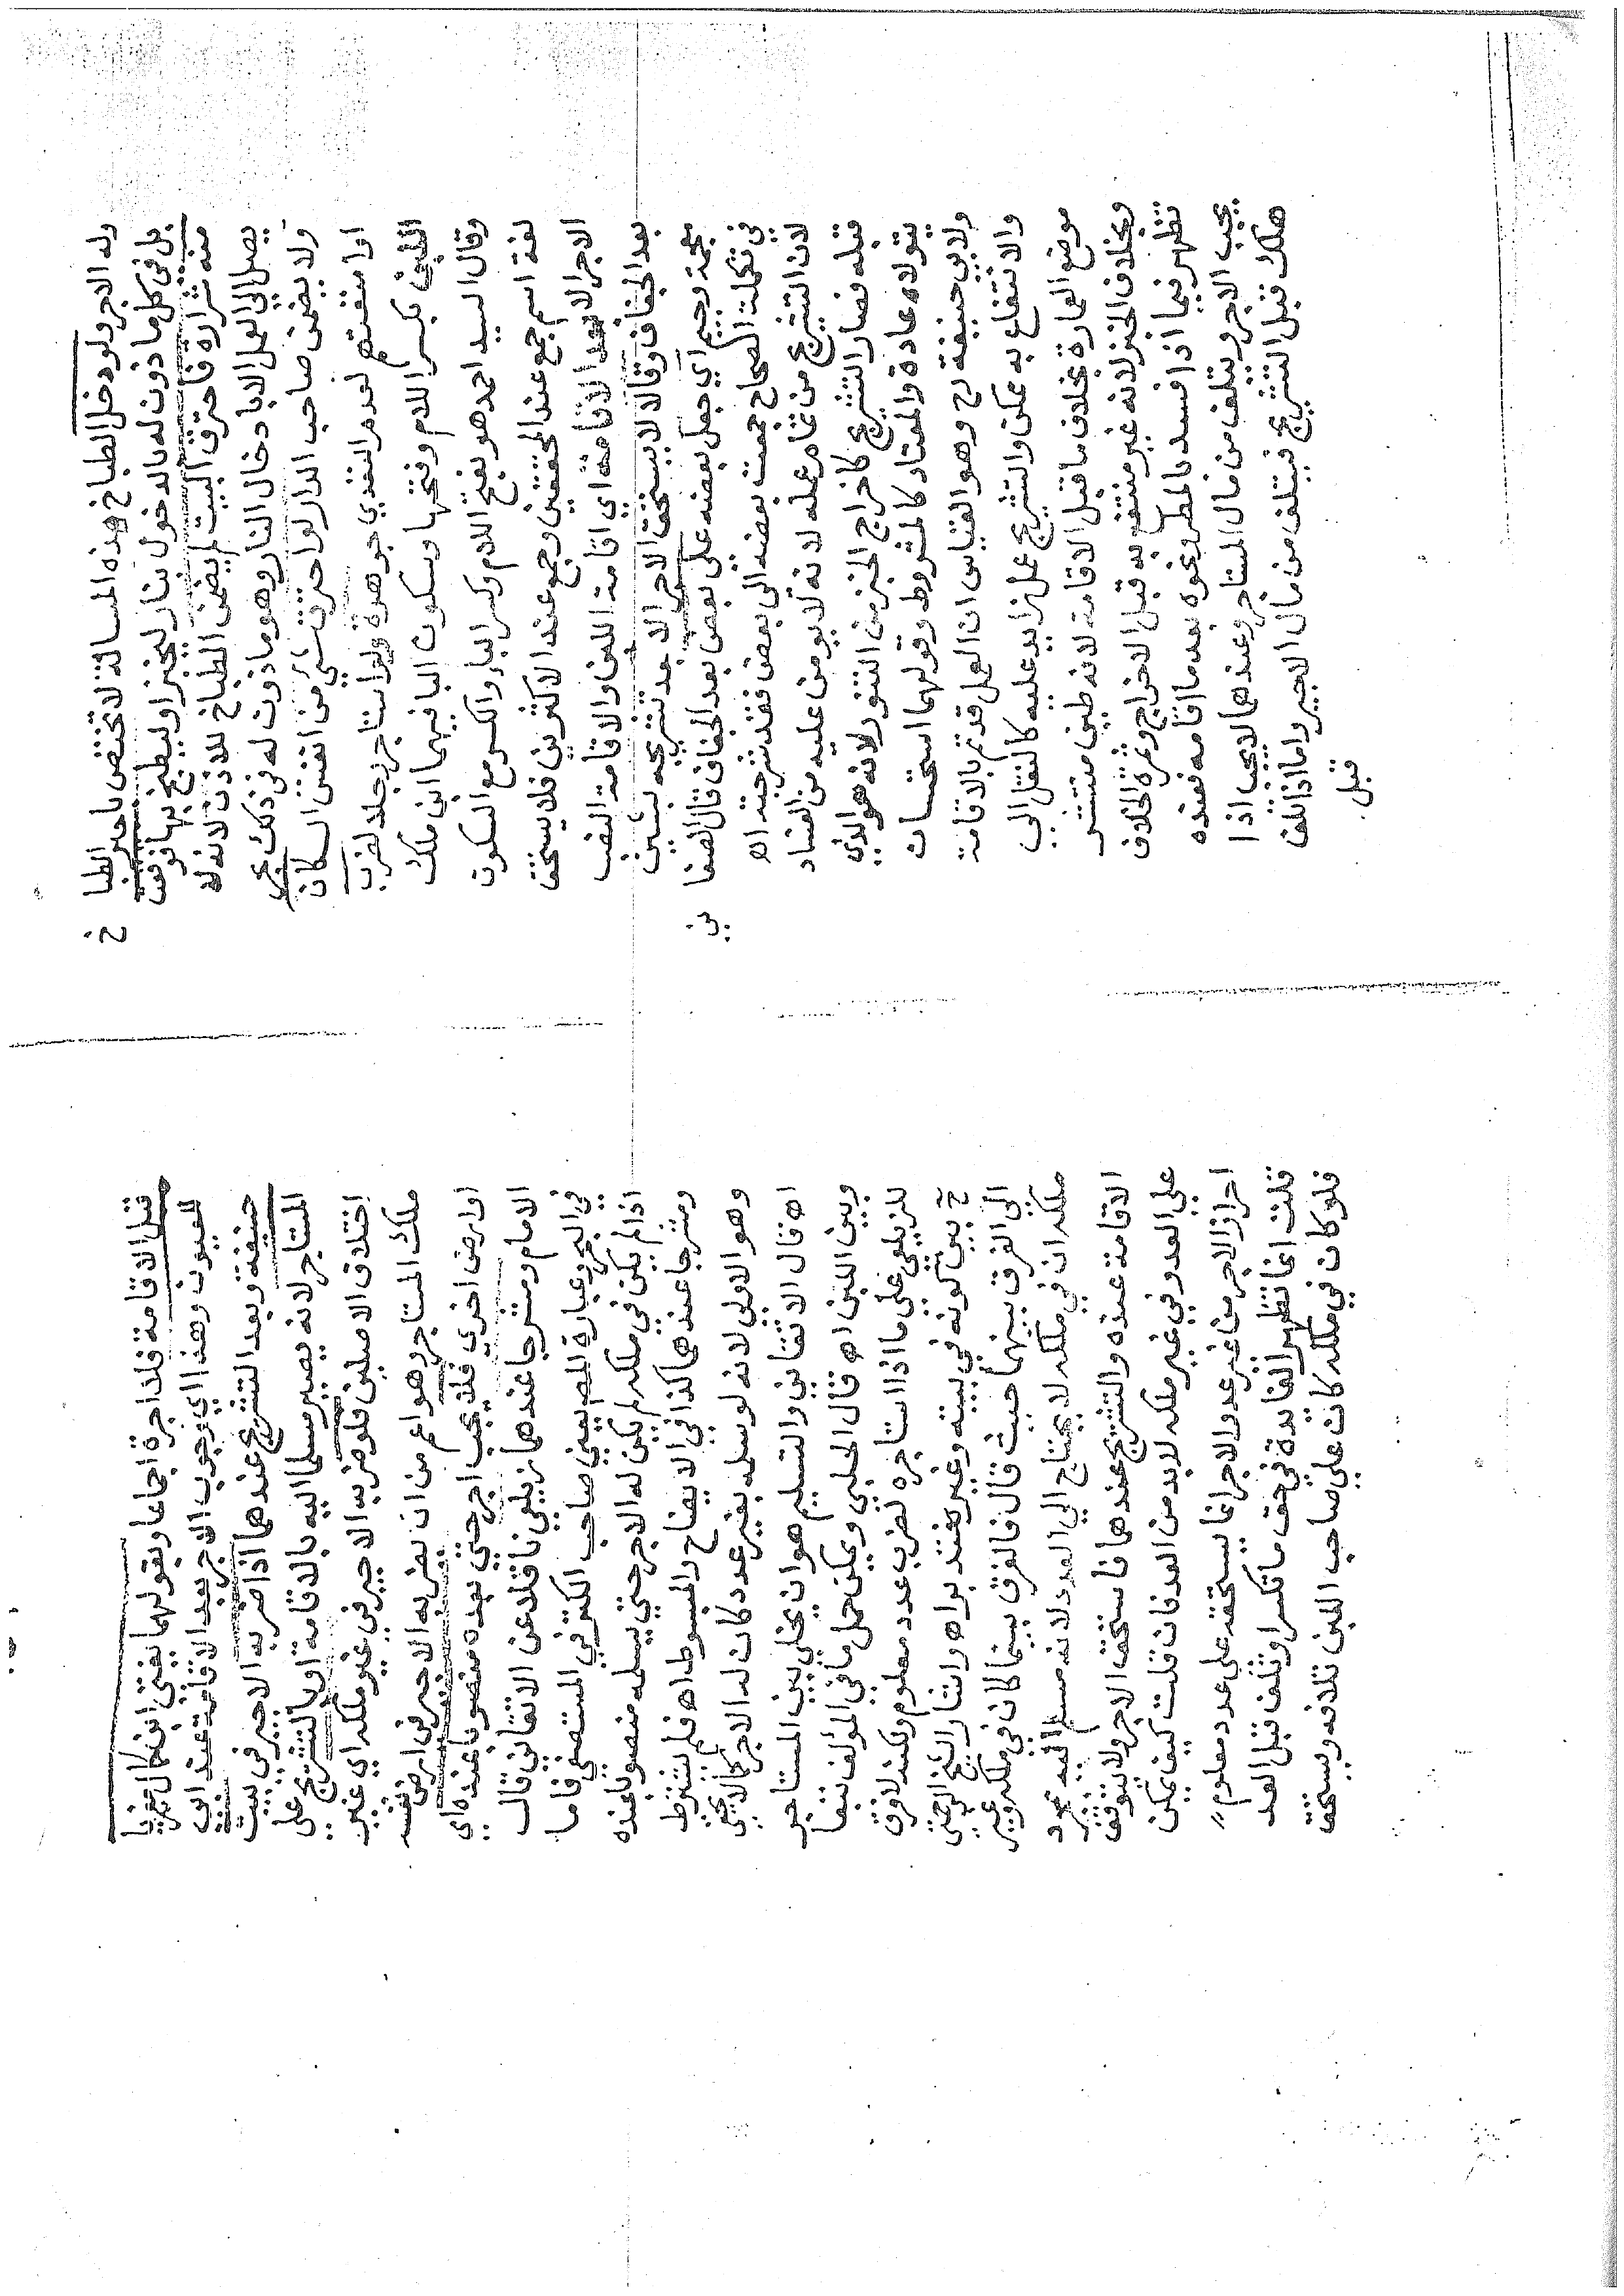 وله الاجر ولو دخل الطباخ هذه المسالة لا تختص باجير الطبا
خ
بل في كل ماذون له بالدخول بنار ليخبز او ليطبخ بها فوقعت
منه شرارة فاحترق البيت لم يضمن الطباخ للاذن لانه لا
يصل الي العمل الا بادخال النار وهو ماذون له في ذلك بحر
ولا يضمن صاحب الدار لو احترق شي من امتعة السكان
او امتعتهم لعدم التعدي جوهرة ولو استاجر رجلا لضرب
اللبن بكسر اللام وفتحها وسكون البا فيهما ابن ملك
وقال السيد احمد هو بفتح اللام وكسر الباء والكسر مع السكون
لغة اسم جمع عند المحققين وجمع عند الاكثرين فلا يستحق
الاجر الا بعد الاقامة اي اقامة اللبن والاقامة النصب
بعد الجفاف وقالا لا يستحق الاجر الا بعد تشريجه بشين
معجمة وجيم اي جعل بعضه علي بعض بعد الجفاف قال الصغا
ني
في تكملة الصحاح جمعت بعضه الي بعض فقد شرجته اه
لان التشريج من تمام عمله لانه لا يومن عليه من الفساد
قبله فصار التشريج كاخراج الخبز من التنور لانه هو الذي
يتولاه عادة والمعتاد كالمشروط وقولهما استحسان
ولابي حنيفة رح وهو القياس ان العمل قد تم بالاقامة
والانتفاع به ممكن والتشريج عمل زايد عليه كالنقل الي
موضع العمارة بخلاف ما قبل الاقامة لانه طين منتشر
وبخلاف الخبز لانه غير منتفع به قبل الاخراج وثمرة الخلاف
تظهر فيما اذا فسد بالمطر ونحوه بعد ما اقامه فعنده
يجب الاجر ويتلف من مال المستاجر وعندهما لا يجب اذا
هلك قبل التشريج فيتلف من مال الاجير واما اذا تلف
قبل
قبل الاقامة فلا اجرة اجماعا وبقولهما يفتي ابن كمال معزيا
للعيون وهذا اي وجوب الاجر بعد الاقامة عند ابي
حنيفة وبعد التشريج عندهما اذا ضربه الاجير في بيت
المستاجر لانه يصير مسلما اليه بالاقامة او بالتشريج علي
اختلاف الاصلين فلو ضربه الاجير في غير ملكه اي غير
ملك المستاجر وهو اعم من ان يضربه الاجير في ارض نفسه
او ارض اخري فلا يجب اجر حتي يعده منصوبا عنده اي
الامام ومشرجا عندهما زيلعي ناقلا عن الاتقاني قال
في البحر وعبارة المص يعني صاحب الكنز في المستصفي فاما
اذا لم يكن في ملكه لم يكن له الاجر حتي يسلمه منصوبا عنده
ومشرجا عندهما كذا في الايضاح والمبسوط اه فلم يشترط
وهو الاولي لانه لو سلمه بغير عدد كان له الاجر كما لا يخفي
اه قال الاتقاني والتسليم هو ان يخلي بين المستاجر
وبين اللبن اه قال الحلبي ويمكن حمل ما في المؤلف تبعا
للزيلعي علي ما اذا استاجره لضرب عدد معلوم ولكنه لا فرق
ح بين كونه في بيته وغيره فتدبر اه واشار الشيخ الرحمتي
الي الفرق بينهما حيث قال فالفرق بينما كان في ملكه وغير
ملكه ان في ملكه لا يحتاج الي العدد لانه مسلم اليه بمجرد
الاقامة عنده والتشريج عندهما فاستحق الاجر ولا يتوقف
علي العد وفي غير ملكه لا بد من العد فان قلت كيف يمكن
احراز الاجر من غير عد والاجر انما يستحقه علي عدد معلوم
قلت انما تظهر الفائدة في حق ما تكسر او تلف قبل العد
فلو كان في ملكه كان علي صاحب اللبن تلافه ويستحق